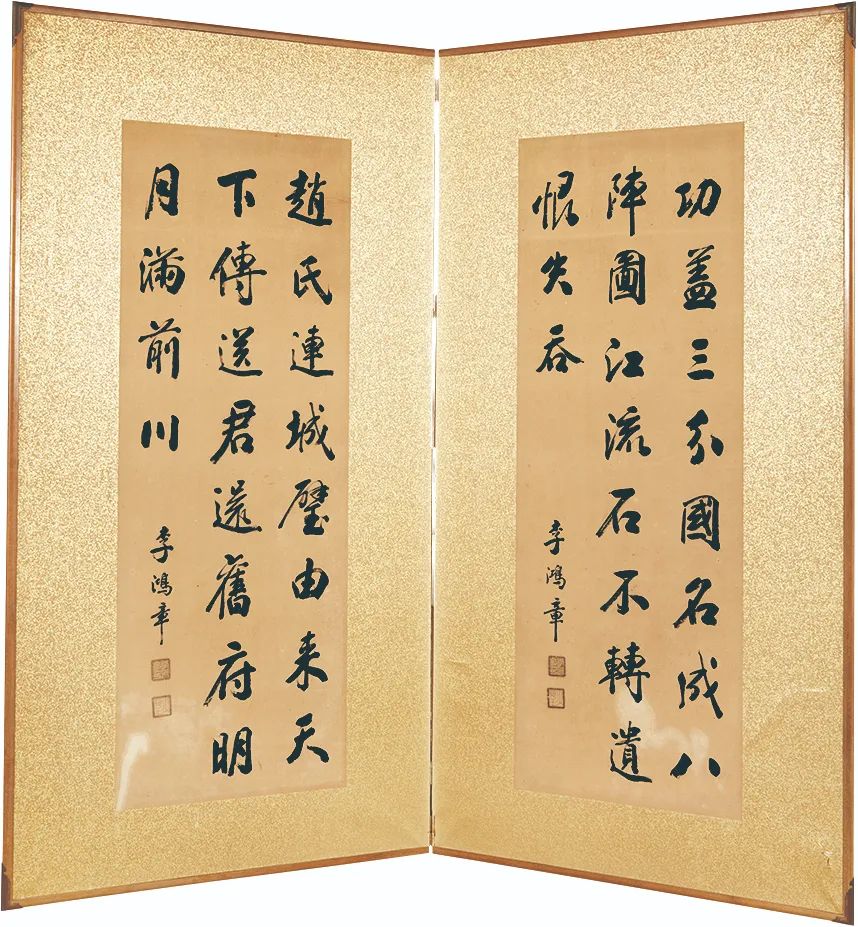 功蓋三分國名成八
陣圖江流石不轉遺
恨失吞
李鴻章
趙氏連城璧由来天
下傳送君還舊府明
月滿前川
李鴻章